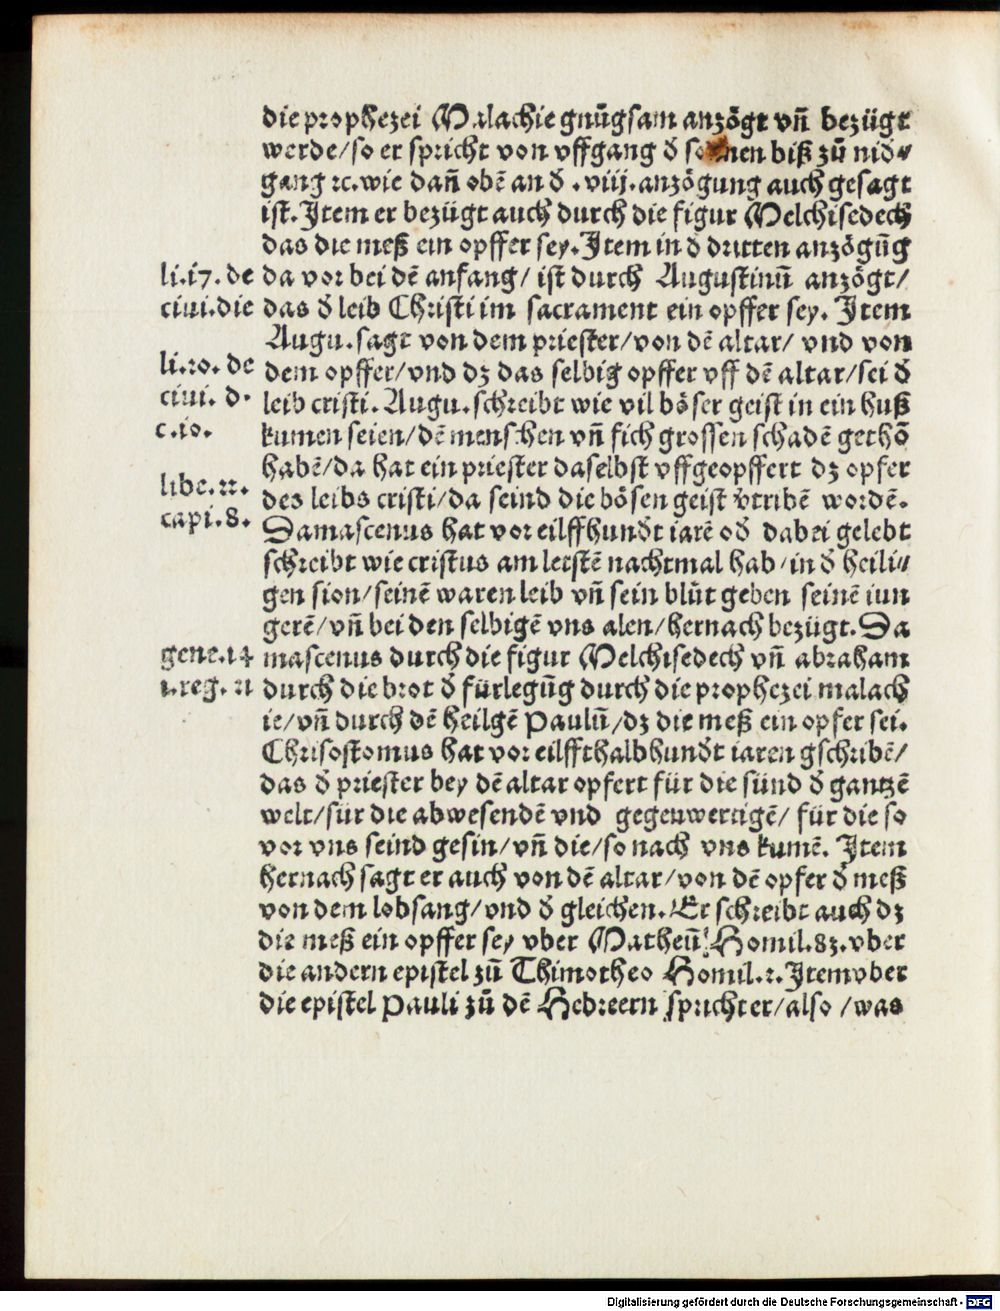 die prophezei Malachie gnůgsam anzögt vñ bezügt
werde/so er spricht von vffgang d̄ sonnen biß zů nid⸗
gang ꝛc.wie dañ obē an d̄ .viij.anzögung auch gesagt
ist. Item er bezügt auch durch die figur Melchisedech
das die meß ein opffer sey. Item in d̄ dritten anzögūg
li.17. de
da vor bei dē anfang/ ist durch Augustinū anzögt/
ciui.die
das d̄ leib Christi im sacrament ein opffer sey. Item
Augu.sagt von dem priester/von dē altar/ vnd von
li.20. de
dem opffer/vnd dz das selbig opffer vff dē altar/sei d̄
ciui. d.
leib cristi. Augu.schreibt wie vil böser geist in ein huß
c.10.
kumen seien/dē menschen vñ fich grossen schadē gethō
habē/da hat ein priester daselbst vffgeopffert dz opfer
libe.22.
des leibs cristi/da seind die bösen geist v̄tribē wordē.
capi.8.
Damascenus hat vor eilffhund̄t iarē od̄ dabei gelebt
schreibt wie cristus am letstē nachtmal hab/in d̄ heili⸗
gen sion/seinē waren leib vñ sein blůt geben seinē iun
gerē/vñ bei den selbigē vns alen/hernach bezügt. Da
gene.14
mascenus durch die figur Melchisedech vñ abraham
1.reg. 21
durch die brot d̄ fürlegūg durch die prophezei malach
ie/vñ durch dē heilgē Paulū/dz die meß ein opfer sei.
Chrisostomus hat vor eilffthalbhund̄t iaren gschribē/
das d̄ priester bey dē altar opfert für die sünd d̄ gantzē
welt/für die abwesendē vnd gegenwertigē/ für die so
vor vns seind gesin/vñ die/so nach vns kumē. Item
hernach sagt er auch von dē altar/von dē opfer d̄ meß
von dem lobsang/vnd d̄ gleichen. Er schreibt auch dz
die meß ein opffer sey vber Matheū Homil.83.vber
die andern epistel zů Thimotheo Homil.2.Item vber
die epistel Pauli zů dē Hebreern spricht er/also /was
Digitalisierung gefördert durch die Deutsche Forschungsgemeinschaft - DFG